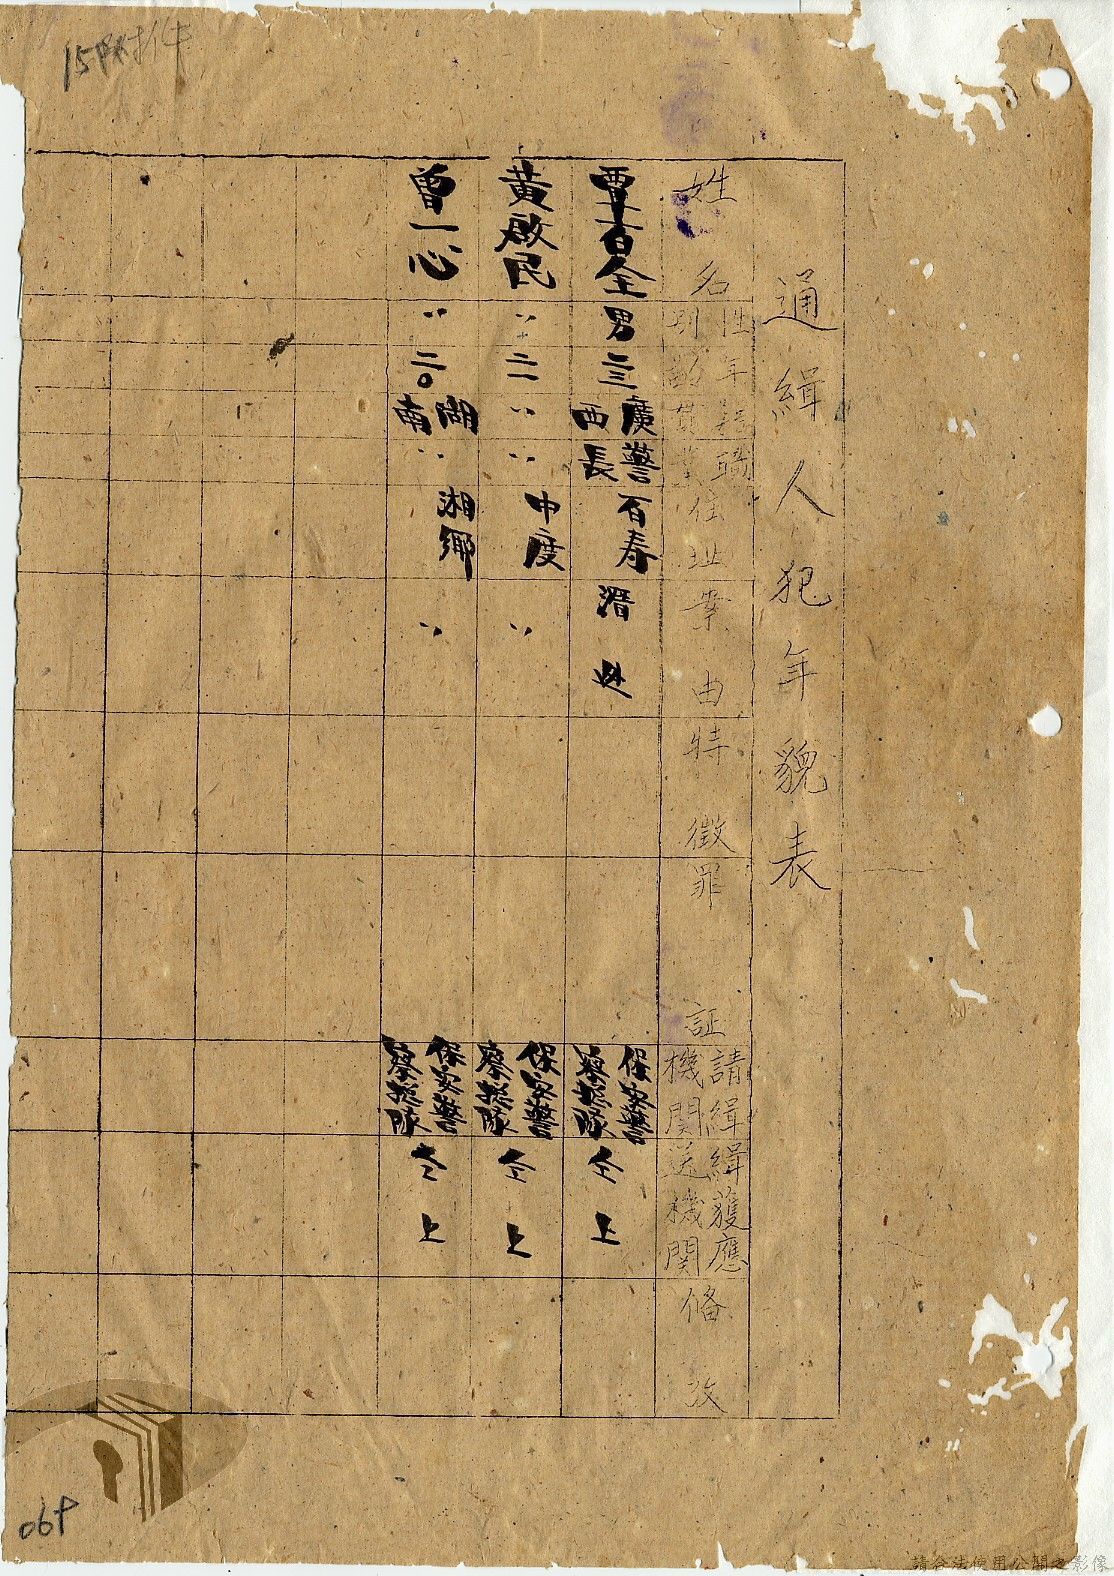 15附件
通緝人犯年貌表
姓名
性別
年齡
籍貫
職業
住址
案由
特徵
罪証
請緝機關
緝獲應送機關
備攷
男
二三
廣西
警長
百寿
潛逃
保安警察總隊
仝上
黃啟民
〃
二一
〃
〃
中度
〃
保安警察總隊
仝上
曾一心
〃
二〇
湖南
〃
湘鄉
〃
保安警察總隊
仝上
請合法使用公開之影像